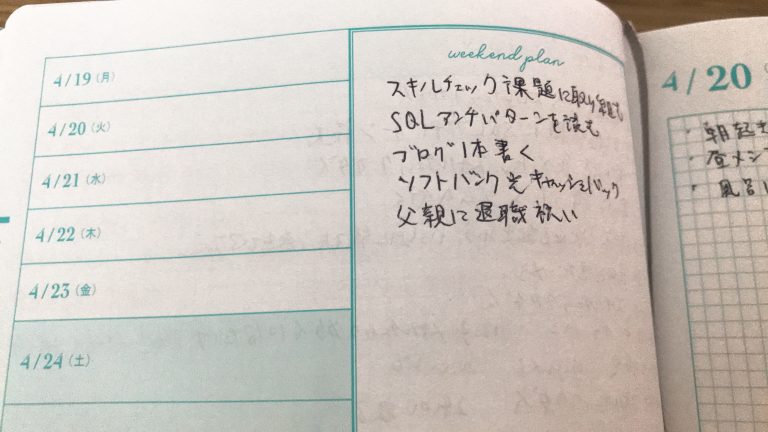 4/19（月）
4/20（火）
4/21（水）
4/22（木）
4/23（金）
4/24（土）
weekend plan
スキルチェック課題に取り組む
SQLアンチパターンを読む
ブログ1本書く
ソフトバンク光キャッシュバック
父親に退職祝い
4/20
・朝起き
・昼メシ
・風呂